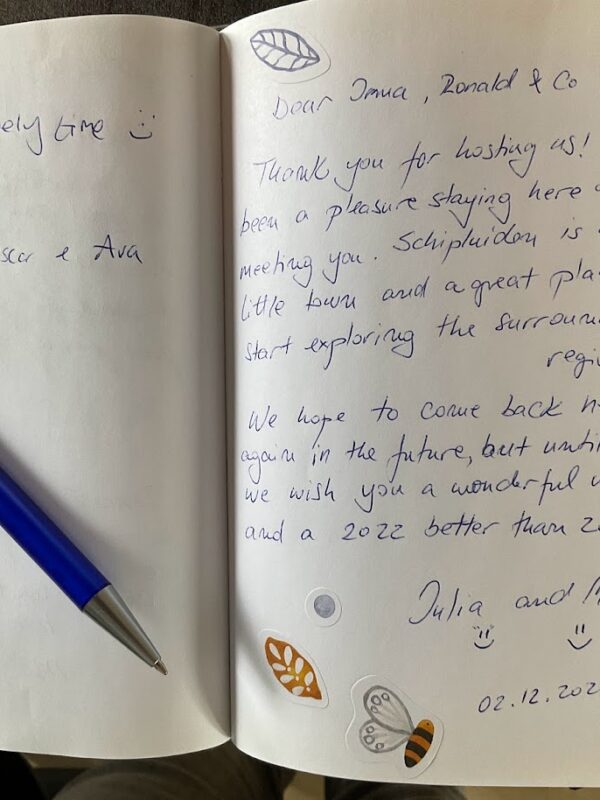 ely time
e Ava
Dear Irma, Ronald & Co
Thank you for hosting us!
been a pleasure staying here
meeting you. Schipluiden is
little town and a great pla
start exploring the surroun
regi
We hope to come back h
again in the future, but unti
we wish you a wonderful
and a 2022 better than 2
Julia and
02.12.202